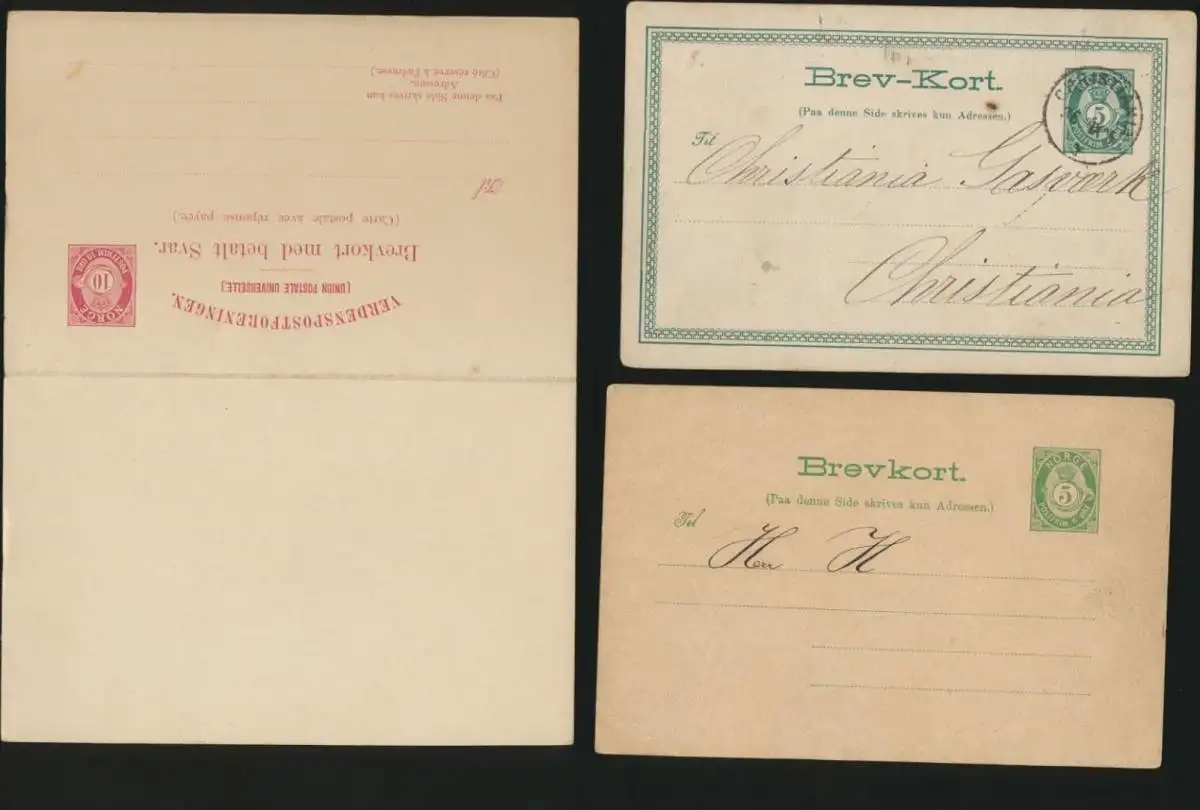 VERDENSPOSTFORENINGEN.
(UNION POSTALE UNIVERSELLE)
Brevkort med betalt Svar.
(Carte postale avec réponse payée.)
NORGE
10
POSTFRIM 10 ØRE
Til
Paa denne Side skrives kun
Adressen.
(Côté réservé à l'adresse.)
Brev-Kort.
(Paa denne Side skrives kun Adressen.)
5
Til
Christiania Gasværk
Christiania
Brevkort.
(Paa denne Side skrives kun Adressen.)
NORGE
5
Til
Herr H